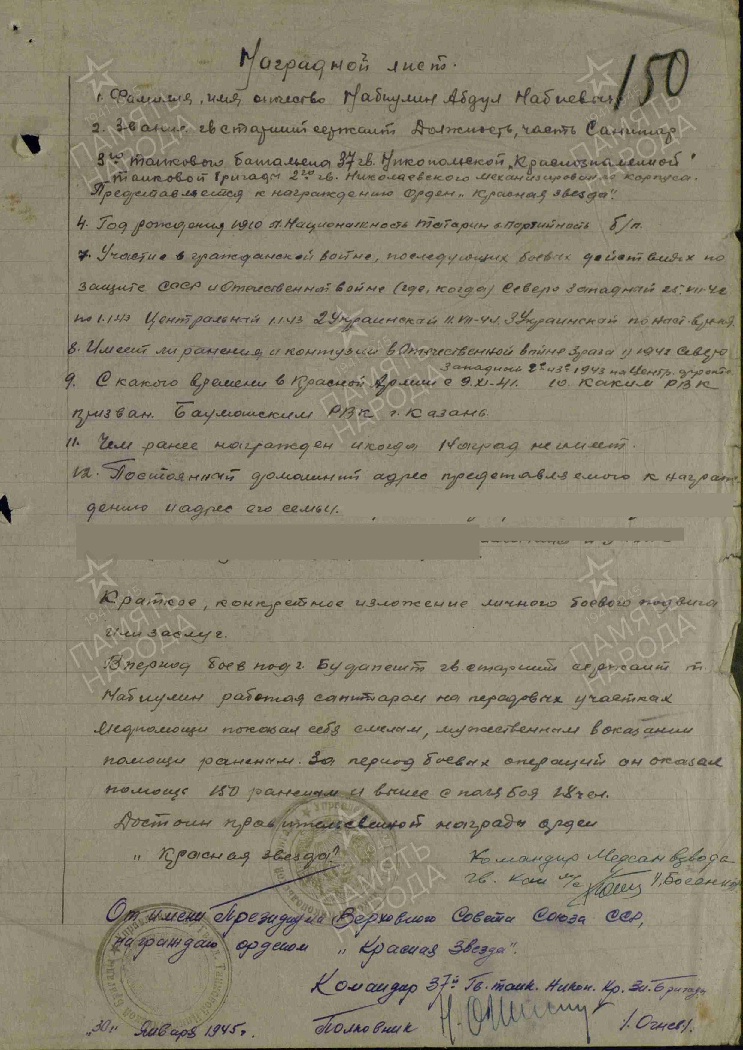 150
Наградной лист.
1. Фамилия, имя отчество Набиулин Абдул Набиевич
2. Звание гв старший сержант Должность, часть Санитар
3го танкового батальона 37 гв. Никопольской „Краснознаменной"
танковой бригады 2го гв. Николаевского механизированного корпуса.
Представляется к награждению Орден „Красная звезда".
4. Год рождения 1910 Национальность татарин Партийность б/п.
7. Участие в гражданской войне, последующих боевых действиях по
защите СССР и Отечественной войне (где, когда) Северо Западный
по 1.1.43 Центральный 1.1.43 2 Украинский 3 Украинский по наст. время.
8. Имеет ли ранения и контузии в Отечественной войне 1942 Северо
Западный 1943 на Центр. фронте
9. С какого времени в Красной Армии с 9.XI-41. 10. Каким РВК
призван. Бауманским РВК г. Казань
11. Чем ранее награжден и когда Наград не имеет.
12. Постоянный домашний адрес представляемого к награж-
дению и адрес его семьи.
Краткое, конкретное изложение личного боевого подвига
или заслуг.
В период боев под г. Будапешт гв старший сержант т.
Набиулин работая санитаром на передовых участках
медпомощи показал себя смелым, мужественным в оказании
помощи раненым. За период боевых операций он оказал
помощь 150 раненым и вынес с поля боя 28 чел.
Достоин правительственной награды орден
„Красная звезда".
Командир Медсанвзвода
гв. кап м/с
От имени Президиума Верховного Совета Союза ССР,
награждаю орденом „Красная Звезда".
Командир 37й Гв. танк. Никоп. Кр. Зн. Бригады
„30" Января 1945г. Полковник /Огнев/.
ПАМЯТЬ НАРОДА